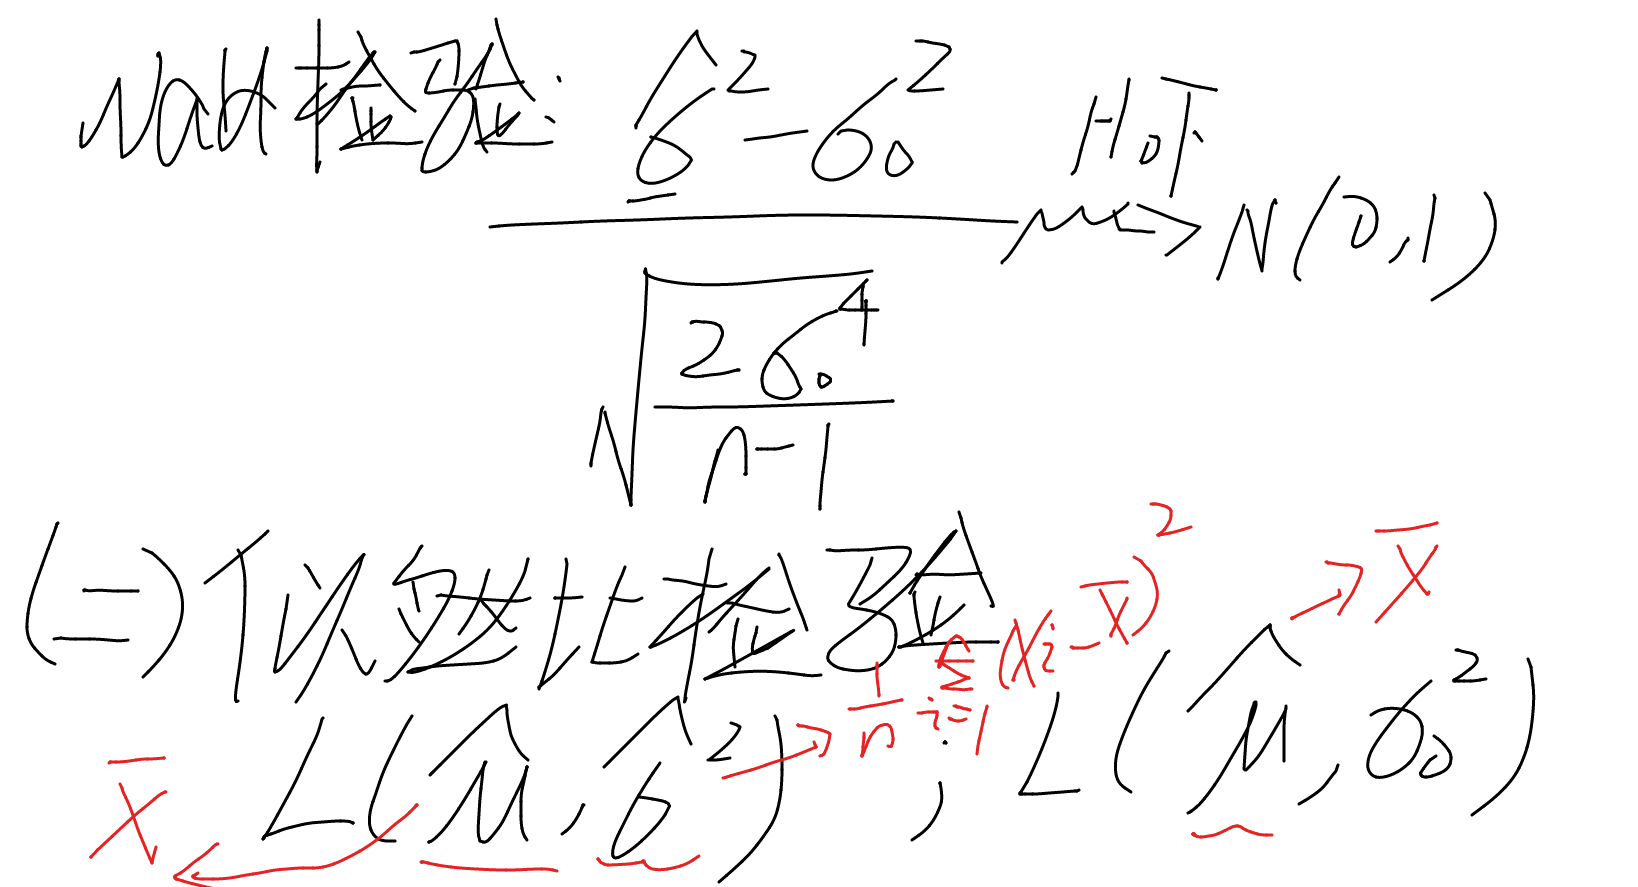 Wald检验: (σ̂² − σ₀²) / √(2σ₀⁴/(n−1)) ~→ N(0,1) H₀下
(二) 似然比检验
L(μ̂, σ̂²) ; L(μ̂, σ₀²)
X̄
→ 1/n Σ_{i=1}^{n} (Xi − X̄)²
→ X̄